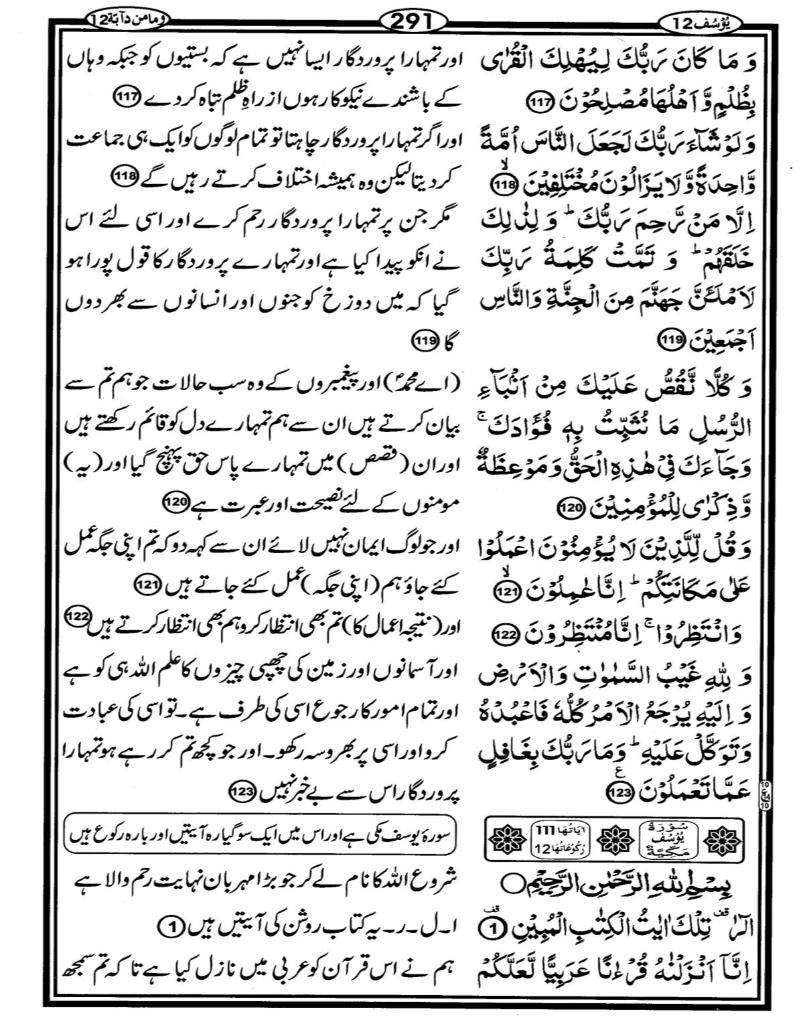 یُوْسُف 12
291
وما من دآبة 12
وَ مَا كَانَ رَبُّكَ لِیُهْلِكَ الْقُرٰی
بِظُلْمٍ وَّ اَهْلُهَا مُصْلِحُوْنَ 117
وَ لَوْ شَآءَ رَبُّكَ لَجَعَلَ النَّاسَ اُمَّةً
وَّاحِدَةً وَّ لَا یَزَالُوْنَ مُخْتَلِفِیْنَ ۙ 118
اِلَّا مَنْ رَّحِمَ رَبُّكَ ؕ وَ لِذٰلِكَ
خَلَقَهُمْ ؕ وَ تَمَّتْ كَلِمَةُ رَبِّكَ
لَاَمْلَـَٔنَّ جَهَنَّمَ مِنَ الْجِنَّةِ وَالنَّاسِ
اَجْمَعِیْنَ 119
وَ كُلًّا نَّقُصُّ عَلَیْكَ مِنْ اَنْۢبَآءِ
الرُّسُلِ مَا نُثَبِّتُ بِهٖ فُؤَادَكَ ۚ
وَ جَآءَكَ فِیْ هٰذِهِ الْحَقُّ وَ مَوْعِظَةٌ
وَّ ذِكْرٰی لِلْمُؤْمِنِیْنَ 120
وَ قُلْ لِّلَّذِیْنَ لَا یُؤْمِنُوْنَ اعْمَلُوْا
عَلٰی مَكَانَتِكُمْ ؕ اِنَّا عٰمِلُوْنَ ۙ 121
وَ انْتَظِرُوْا ۚ اِنَّا مُنْتَظِرُوْنَ 122
وَ لِلّٰهِ غَیْبُ السَّمٰوٰتِ وَ الْاَرْضِ
وَ اِلَیْهِ یُرْجَعُ الْاَمْرُ كُلُّهٗ فَاعْبُدْهُ
وَ تَوَكَّلْ عَلَیْهِ ؕ وَ مَا رَبُّكَ بِغَافِلٍ
عَمَّا تَعْمَلُوْنَ 123 ع
سُوْرَةُ یُوْسُف مَکِّیَّة
اٰیَاتُهَا 111
رُکُوْعَاتُهَا 12
بِسْمِ اللّٰهِ الرَّحْمٰنِ الرَّحِیْمِ
الٓرٰ ۫ تِلْكَ اٰیٰتُ الْكِتٰبِ الْمُبِیْنِ 1
اِنَّاۤ اَنْزَلْنٰهُ قُرْءٰنًا عَرَبِیًّا لَّعَلَّكُمْ
اور تمہارا پروردگار ایسا نہیں ہے کہ بستیوں کو جبکہ وہاں
کے باشندے نیکوکار ہوں از راہِ ظلم تباہ کر دے 117
اور اگر تمہارا پروردگار چاہتا تو تمام لوگوں کو ایک ہی جماعت
کر دیتا لیکن وہ ہمیشہ اختلاف کرتے رہیں گے 118
مگر جن پر تمہارا پروردگار رحم کرے اور اسی لئے اس
نے انکو پیدا کیا ہے اور تمہارے پروردگار کا قول پورا ہو
گیا کہ میں دوزخ کو جنوں اور انسانوں سے بھر دوں
گا 119
(اے محمدؐ) اور پیغمبروں کے وہ سب حالات جو ہم تم سے
بیان کرتے ہیں ان سے ہم تمہارے دل کو قائم رکھتے ہیں
اور ان (قصص) میں تمہارے پاس حق پہنچ گیا اور (یہ)
مومنوں کے لئے نصیحت اور عبرت ہے 120
اور جو لوگ ایمان نہیں لائے ان سے کہہ دو کہ تم اپنی جگہ عمل
کئے جاؤ ہم (اپنی جگہ) عمل کئے جاتے ہیں 121
اور (نتیجہ اعمال کا) تم بھی انتظار کرو ہم بھی انتظار کرتے ہیں 122
اور آسمانوں اور زمین کی چھپی چیزوں کا علم اللہ ہی کو ہے
اور تمام امور کا رجوع اسی کی طرف ہے۔ تو اسی کی عبادت
کرو اور اسی پر بھروسہ رکھو۔ اور جو کچھ تم کر رہے ہو تمہارا
پروردگار اس سے بے خبر نہیں 123
سورۂ یوسف مکی ہے اور اس میں ایک سو گیارہ آیتیں اور بارہ رکوع ہیں
شروع اللہ کا نام لے کر جو بڑا مہربان نہایت رحم والا ہے
ا۔ل۔ر۔ یہ کتاب روشن کی آیتیں ہیں 1
ہم نے اس قرآن کو عربی میں نازل کیا ہے تاکہ تم سمجھ